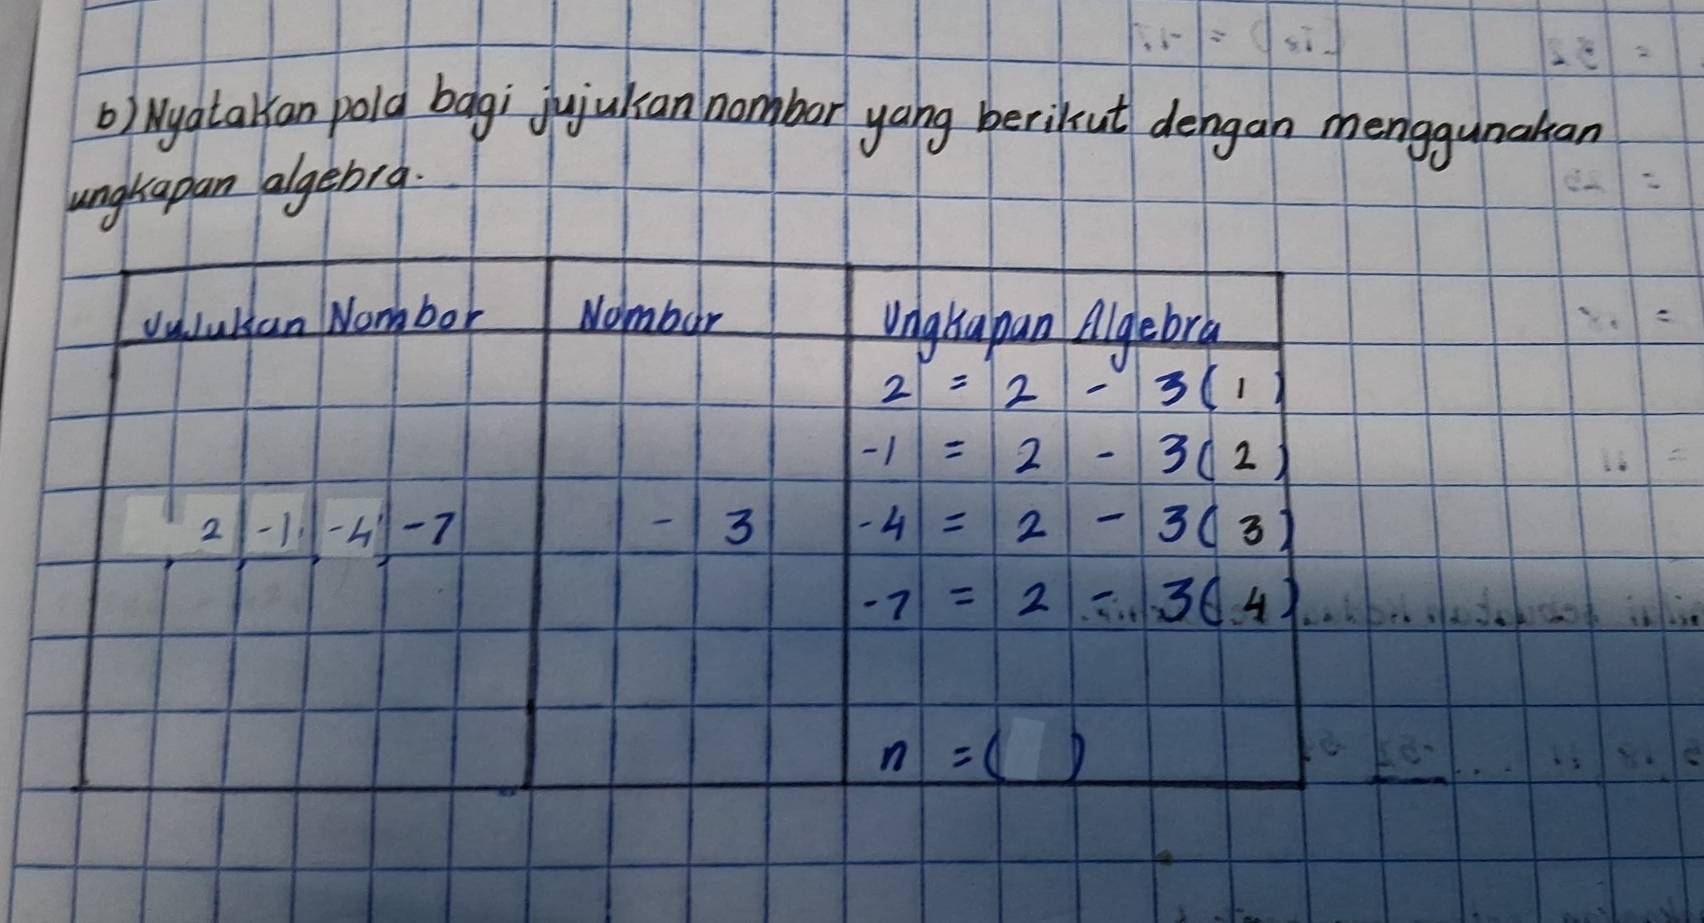 b) Nyatakan pola bagi jujukan nombor yang berikut dengan menggunakan
ungkapan algebra.
Jujukan Nombor Nombor Ungkapan Algebra
2 = 2 - 3(1)
-1 = 2 - 3(2)
2, -1, -4, -7 - 3 -4 = 2 - 3(3)
-7 = 2 - 3(4)
n = ( )